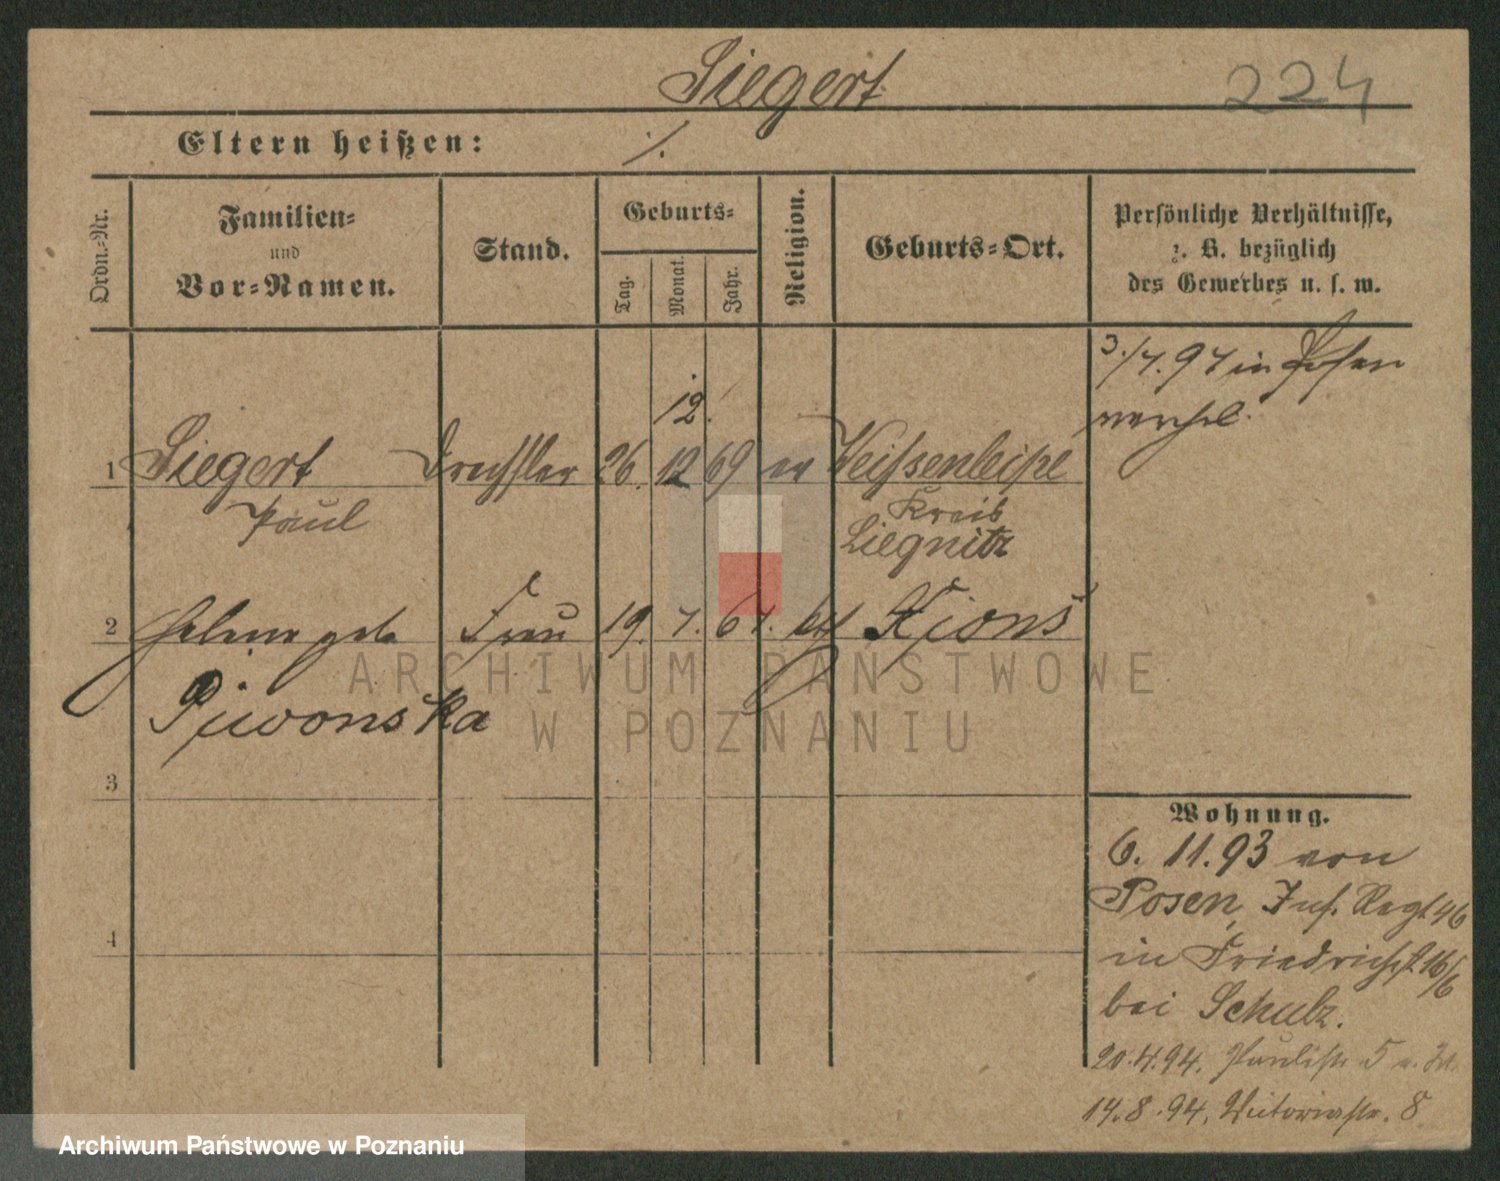 Siegert
224
Eltern heißen: ./.
Ordn.-Nr.
Familien-
und
Vor-Namen.
Stand.
Geburts-
Tag.
Monat.
Jahr.
Religion.
Geburts-Ort.
Persönliche Verhältnisse,
z. B. bezüglich
des Gewerbes u. s. w.
3./7. 97 in Posen
verehel.
12.
1 Siegert Drechsler 26. 12 69 ev Weißenleipe
Paul
Kreis
Liegnitz
2 Helene geb Frau 19. 7. 67. kath Xions
Piwonska
3
4
Wohnung.
6. 11. 93 von
Posen, Inf. Regt 46
in Friedrichst. 16/6
bei Schulz.
20.4.94. Paulistr 5
14.8.94. Victoriastr. 8
ARCHIWUM PAŃSTWOWE
W POZNANIU
Archiwum Państwowe w Poznaniu